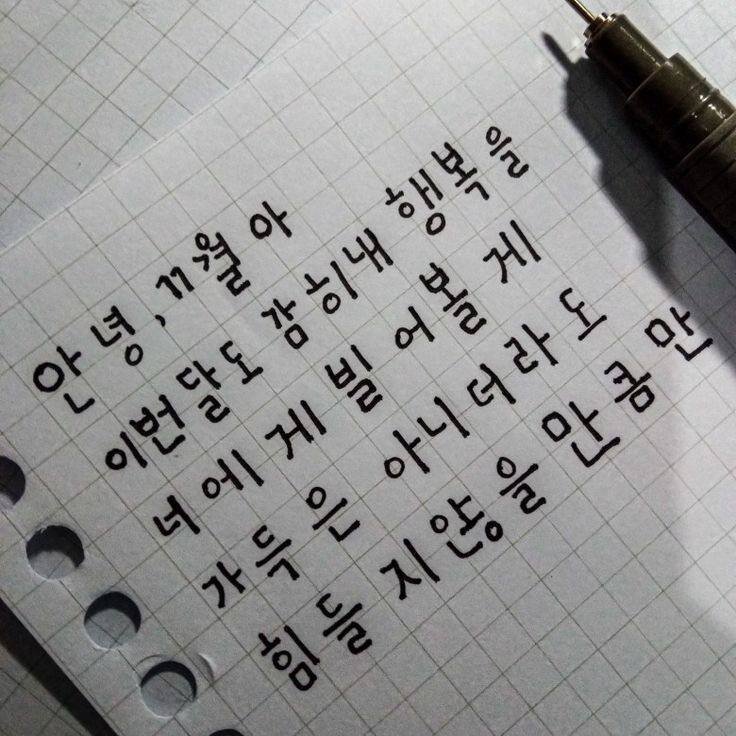 안녕, 11월아
이번달도 감히내 행복을
너에게 빌어볼게
가득은 아니더라도
힘들지않을만큼만